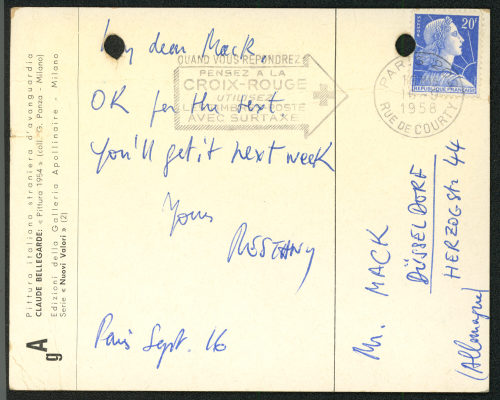 My dear Mack,
OK for the text
You'll get it next week
Yours
RESTANY
Paris Sept. 16
Mr. MACK
DÜSSELDORF
HERZOGstr 44
(Allemagne)
QUAND VOUS RÉPONDREZ
PENSEZ A LA
CROIX-ROUGE
UTILISEZ
LE TIMBRE-POSTE
AVEC SURTAXE
PARIS
1958
RUE DE COURTY
20F
REPUBLIQUE FRANÇAISE
Pittura italiana straniera d'avanguardia
CLAUDE BELLEGARDE: « Pittura 1954 » (coll. G. Panza - Milano)
Edizioni della Galleria Apollinaire - Milano
Serie « Nuovi Valori » (2)
gA